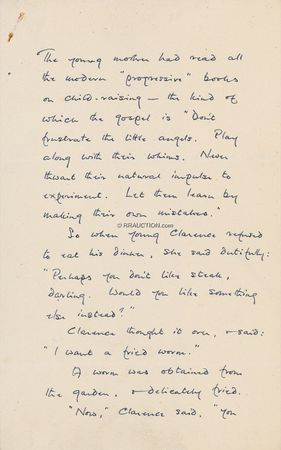 The young mother had read all
the modern "progressive" books
on child-raising — the kind of
which the gospel is "Don't
frustrate the little angels. Play
along with their whims. Never
thwart their natural impulse to
experiment. Let them learn by
making their own mistakes."
© RRAUCTION.com
So when young Clarence refused
to eat his dinner, she said dutifully:
"Perhaps you don't like steak,
darling. Would you like something
else instead?"
Clarence thought it over, & said:
"I want a fried worm."
A worm was obtained from
the garden, & delicately fried.
"Now," Clarence said, "you